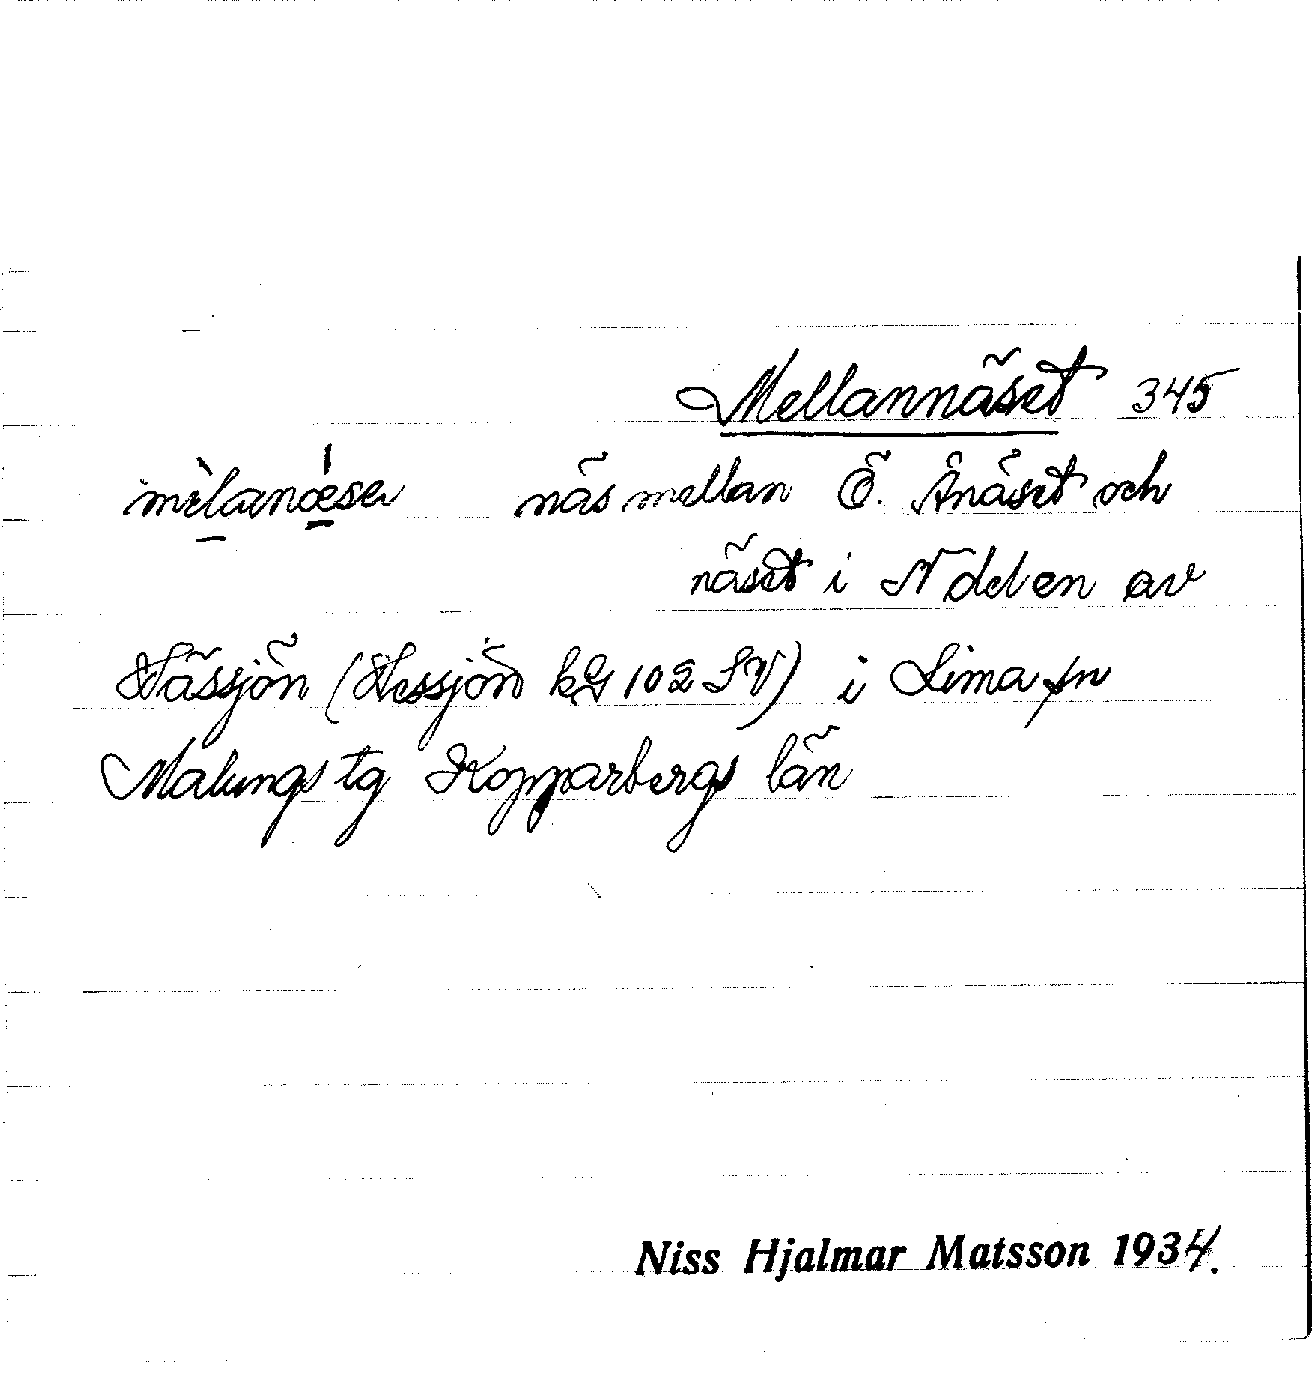 Mellannäset 345
mèlanǿese näs mellan Ö. Ånäset och
näset i N delen av
Nässjön (Nessjön kG 102 SV) i Lima sn
Malungs tg Kopparbergs län
Niss Hjalmar Matsson 1934.